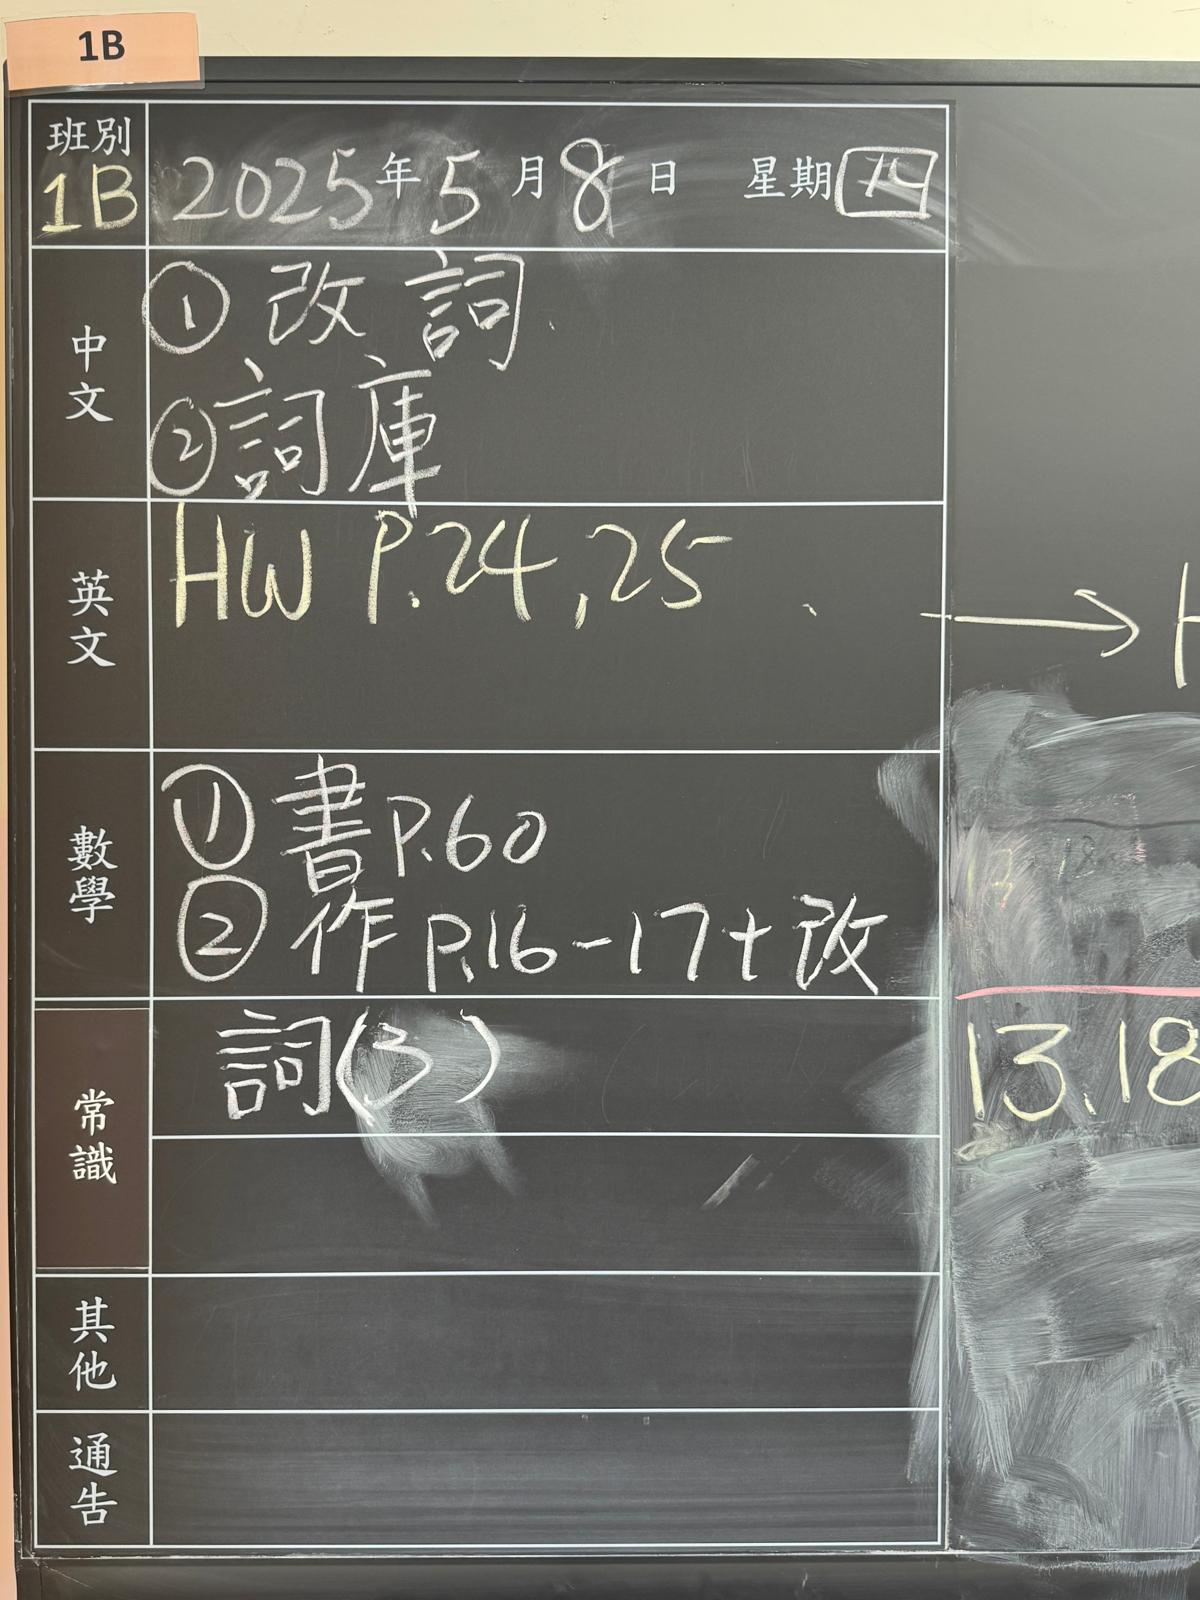 1B
班別
1B
2025年5月8日 星期四
中文
① 改詞
② 詞庫
英文
HW P.24,25
→ H
數學
① 書P.60
② 作P.16-17+改
常識
詞(3)
13.18
其他
通告